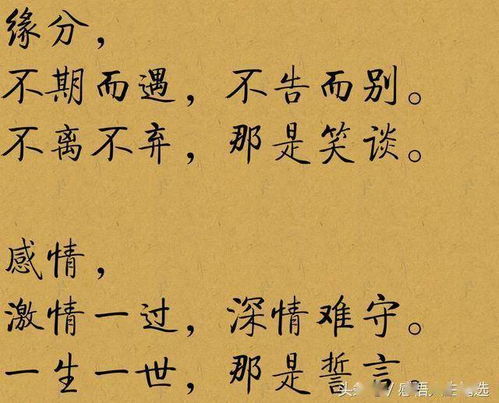 缘分，
不期而遇，不告而别。
不离不弃，那是笑谈。
感情，
激情一过，深情难守。
一生一世，那是誓言。